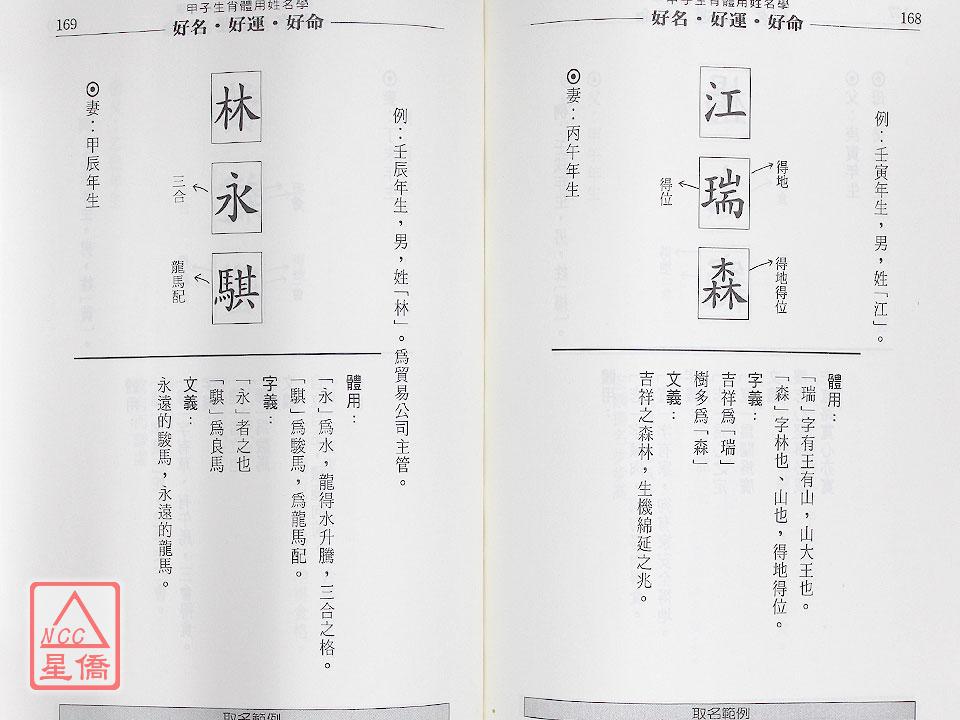 168
甲子生肖體用姓名學
好名・好運・好命
例：壬寅年生，男，姓「江」。
江
瑞
得地
得位
森
得地得位
⊙妻：丙午年生
體用：
「瑞」字有王有山，山大王也。
「森」字林也、山也，得地得位。
字義：
吉祥為「瑞」
樹多為「森」
文義：
吉祥之森林，生機綿延之兆。
取名範例
169
甲子生肖體用姓名學
好名・好運・好命
例：壬辰年生，男，姓「林」。為貿易公司主管。
林
永
三合
騏
龍馬配
⊙妻：甲辰年生
體用：
「永」為水，龍得水升騰，三合之格。
「騏」為駿馬，為龍馬配。
字義：
「永」者之也
「騏」為良馬
文義：
永遠的駿馬，永遠的龍馬。
取名範例
NCC
星僑